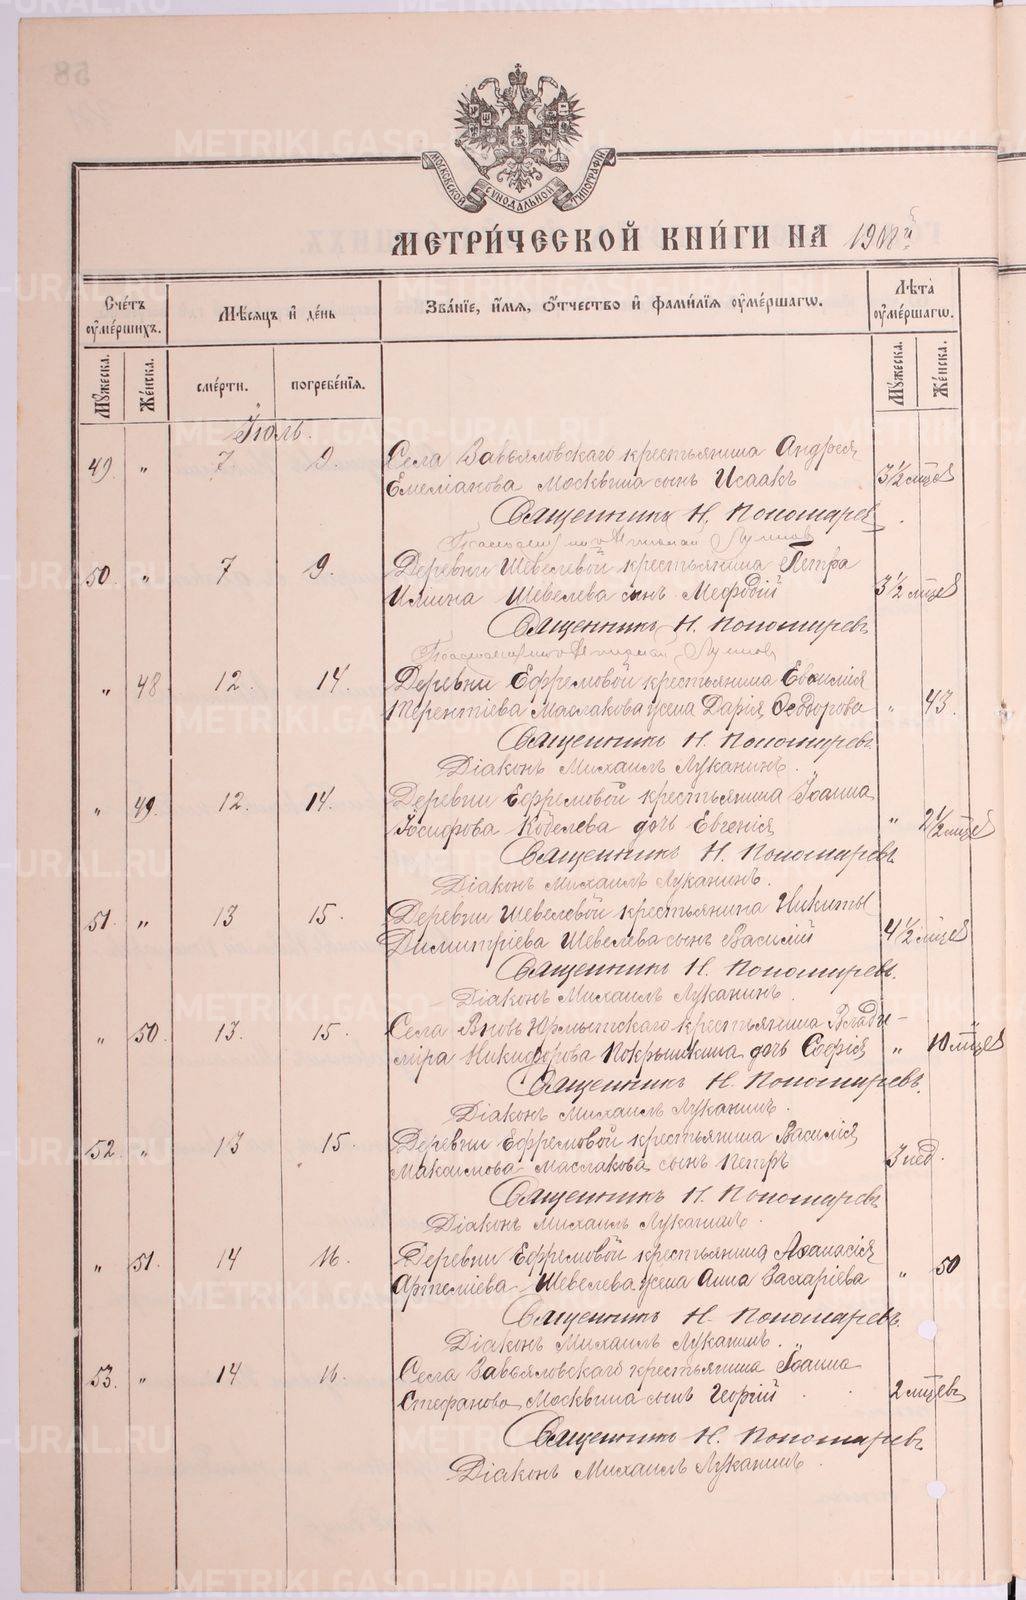 METRIKI.GASO-URAL.RU
58
МОСКОВСКОЙ СѴНОДАЛЬНОЙ ТИПОГРАФІИ.
МЕТРИ́ЧЕСКОЙ КНИ́ГИ НА 1908й г.
Сче́тъ ᲂу҆ме́ршихъ.
Мѣ́сяцъ и҆ де́нь
Зва́нїе, и҆́мѧ, ѻ҆́тчество и҆ фами́лїѧ ᲂу҆ме́ршагѡ.
Лѣ́та ᲂу҆ме́ршагѡ.
Мꙋ́жеска.
Же́нска.
сме́рти.
погребе́нїѧ.
Мꙋ́жеска.
Же́нска.
Іюль.
49 " 7 9. Села Завьяловскаго крестьянина Андрея
Емелианова Москвина сынъ Исаакъ 3 1/2 мцев
Священникъ Н. Пономарев
50. " 7 9. Деревни Шевелевой крестьянина Петра
Илиина Шевелева сынъ Мефодій 3 1/2 мцев
Священникъ Н. Пономаревъ
" 48 12. 14. Деревни Ефремовой крестьянина Евсимія
Терентіева Маслакова жена Дарія Ѳеодорова " 43.
Священникъ Н. Пономаревъ.
Діаконъ Михаилъ Луканинъ.
" 49. 12. 14. Деревни Ефремовой крестьянина Іоанна
Іосифова Кобелева дочь Евгенія " 2 1/2 мцев
Священникъ Н. Пономаревъ
Діаконъ Михаилъ Луканинъ.
51. " 13 15. Деревни Шевелевой крестьянина Никиты
Димитріева Шевелева сынъ Василій 4 1/2 мцев
Священникъ Н. Пономаревъ.
Діаконъ Михаилъ Луканинъ.
" 50. 13. 15. Села Вновь Юрмытскаго крестьянина Влади-
міра Никифорова Покрышкина дочь Софія " 10 мцев
Священникъ Н. Пономаревъ.
Діаконъ Михаилъ Луканинъ.
52. " 13 15. Деревни Ефремовой крестьянина Василія
Максимова Маслакова сынъ Петръ 3 нед.
Священникъ Н. Пономаревъ
Діаконъ Михаилъ Луканинъ.
" 51. 14 16. Деревни Ефремовой крестьянина Аѳанасія
Артеміева Шевелева жена Анна Захаріева " 50
Священникъ Н. Пономаревъ.
Діаконъ Михаилъ Луканинъ.
53. " 14 16. Села Завьяловскаго крестьянина Іоанна
Стефанова Москвина сынъ Георгій 2 мцевъ
Священникъ Н. Пономаревъ
Діаконъ Михаилъ Луканинъ.